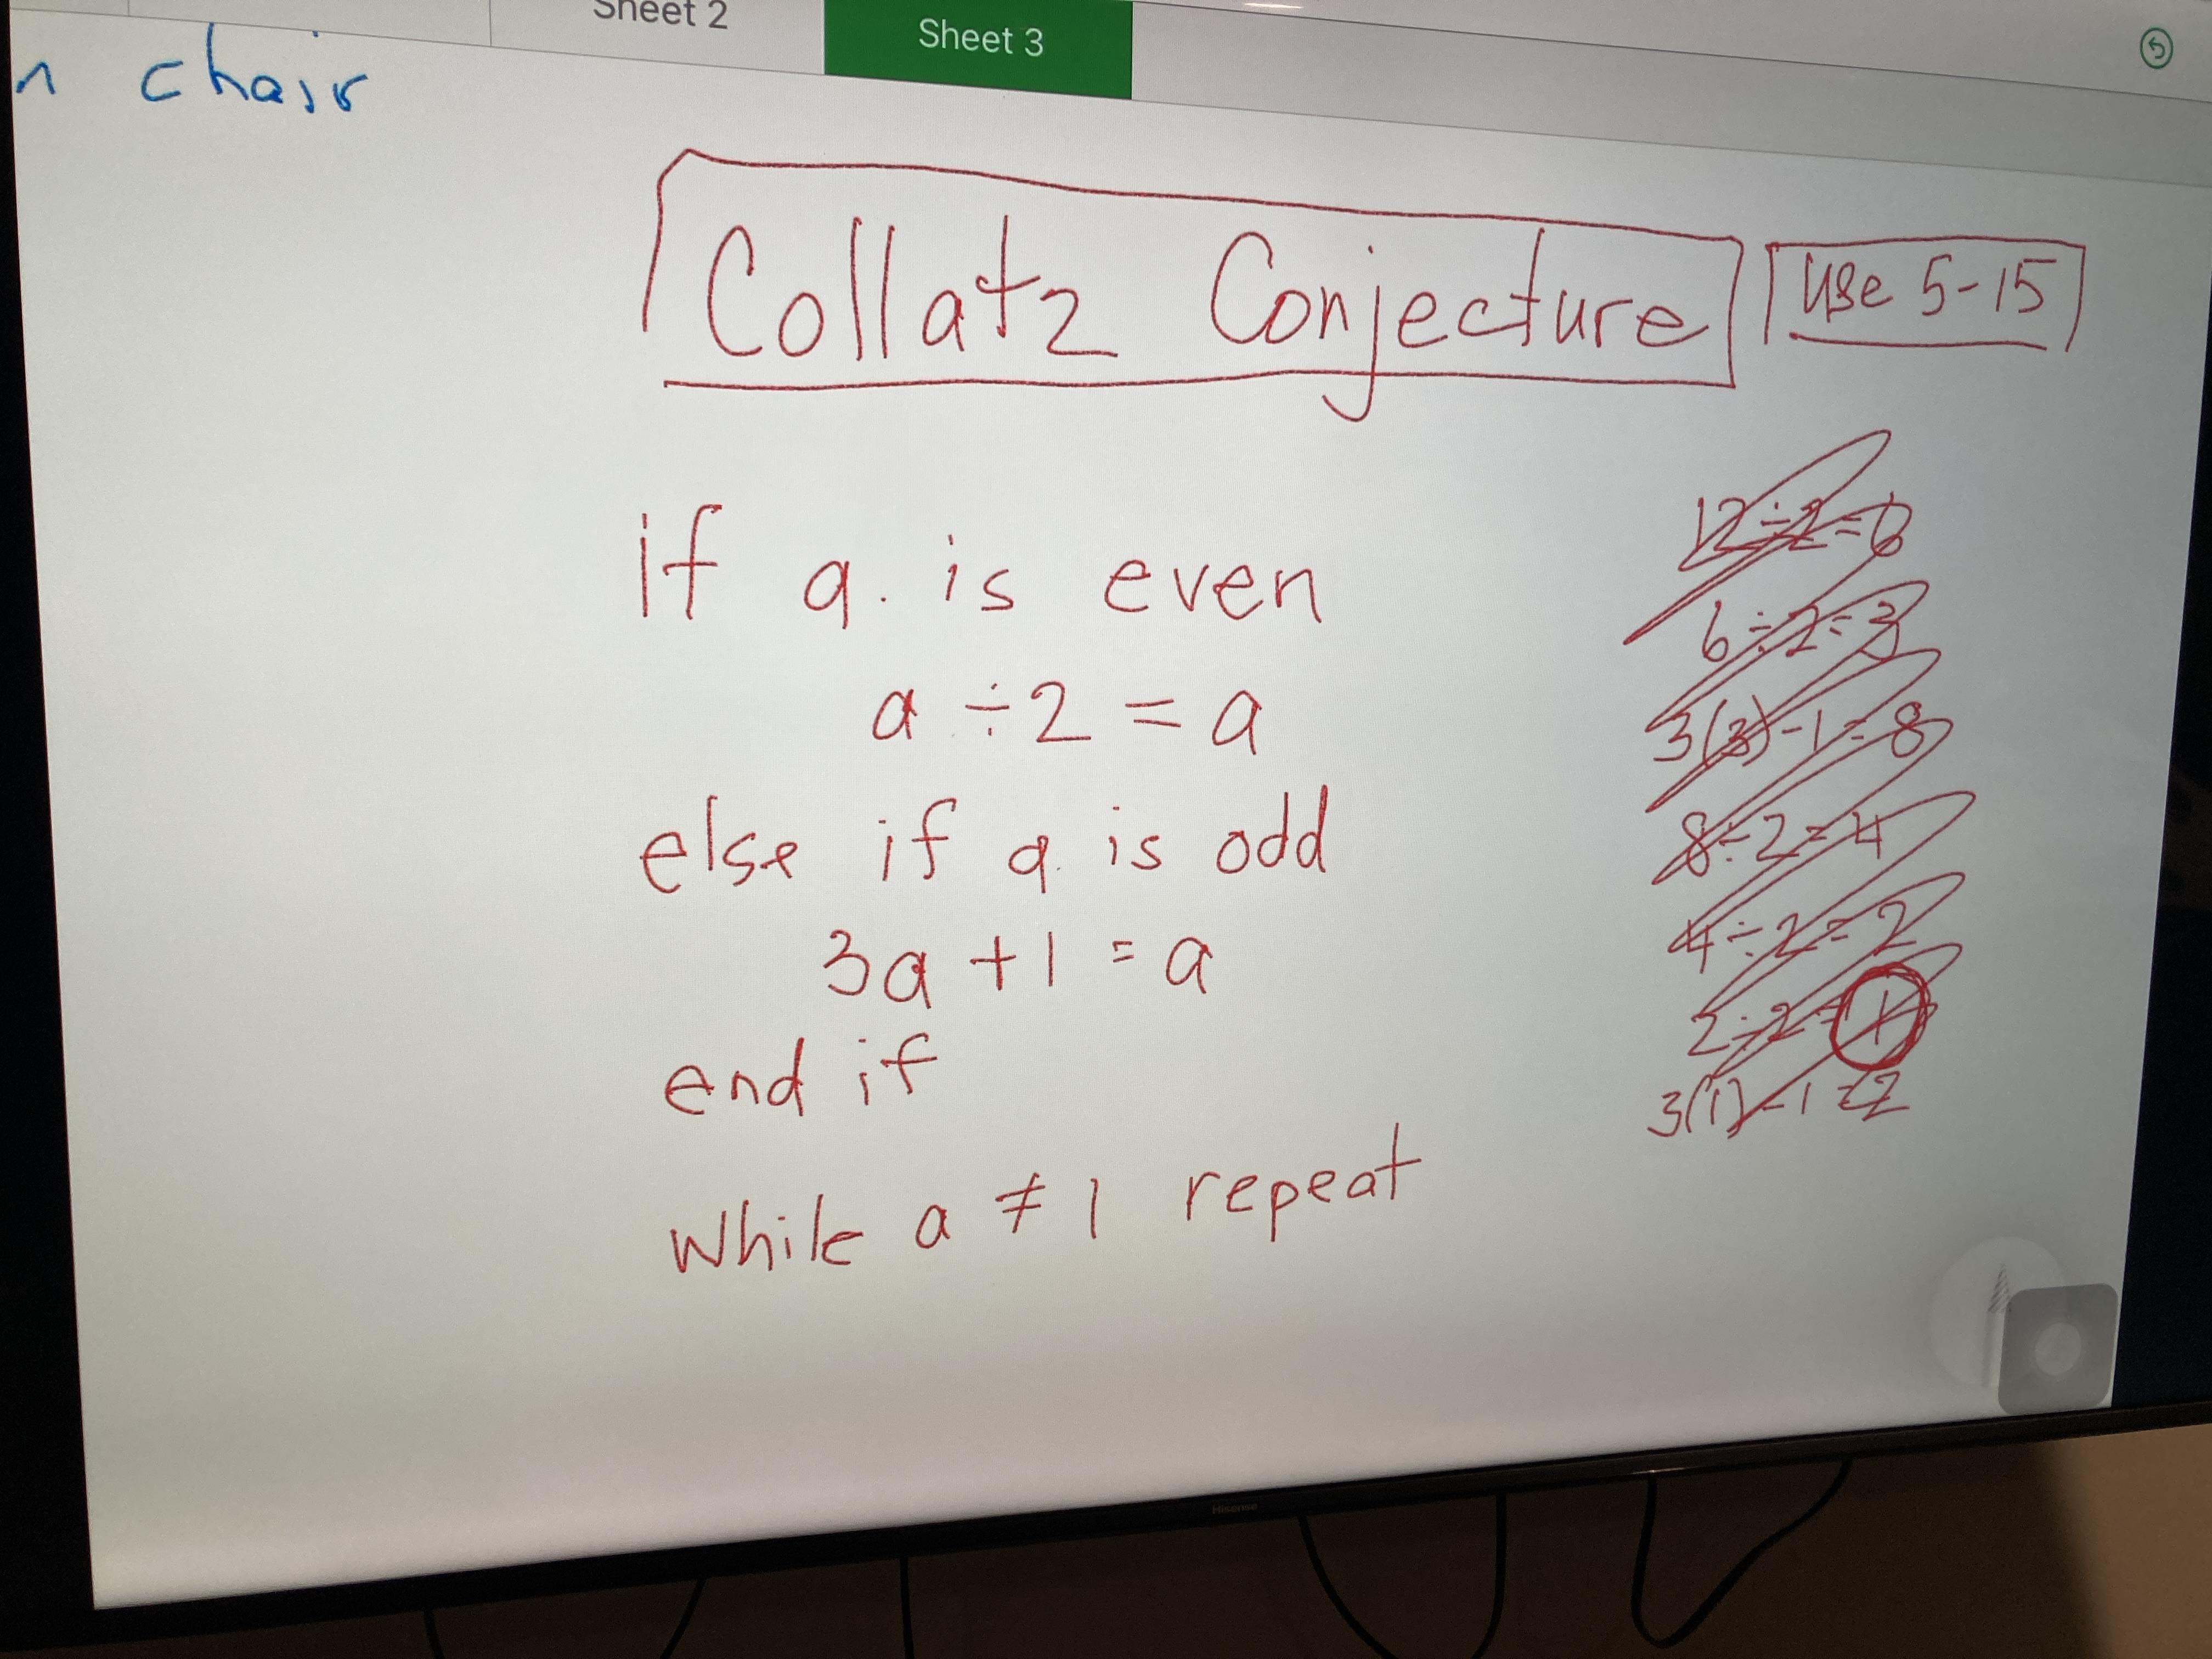 Sheet 2
Sheet 3
n chair
Collatz Conjecture
Use 5-15
if a. is even
a ÷ 2 = a
else if a. is odd
3a + 1 = a
end if
while a ≠ 1 repeat
12 ÷ 2 = 6
6 ÷ 2 = 3
3(3) - 1 = 8
8 ÷ 2 = 4
4 ÷ 2 = 2
2 ÷ 2 = 1
3(1) - 1 = 2
Hisense